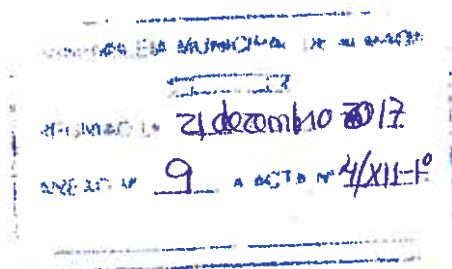 ASSEMBLEIA MUNICIPAL DE ALMADA
REUNIÃO DE 21 dezembro 2017
ANEXO Nº 9 A ACTA Nº 4/XII-1º